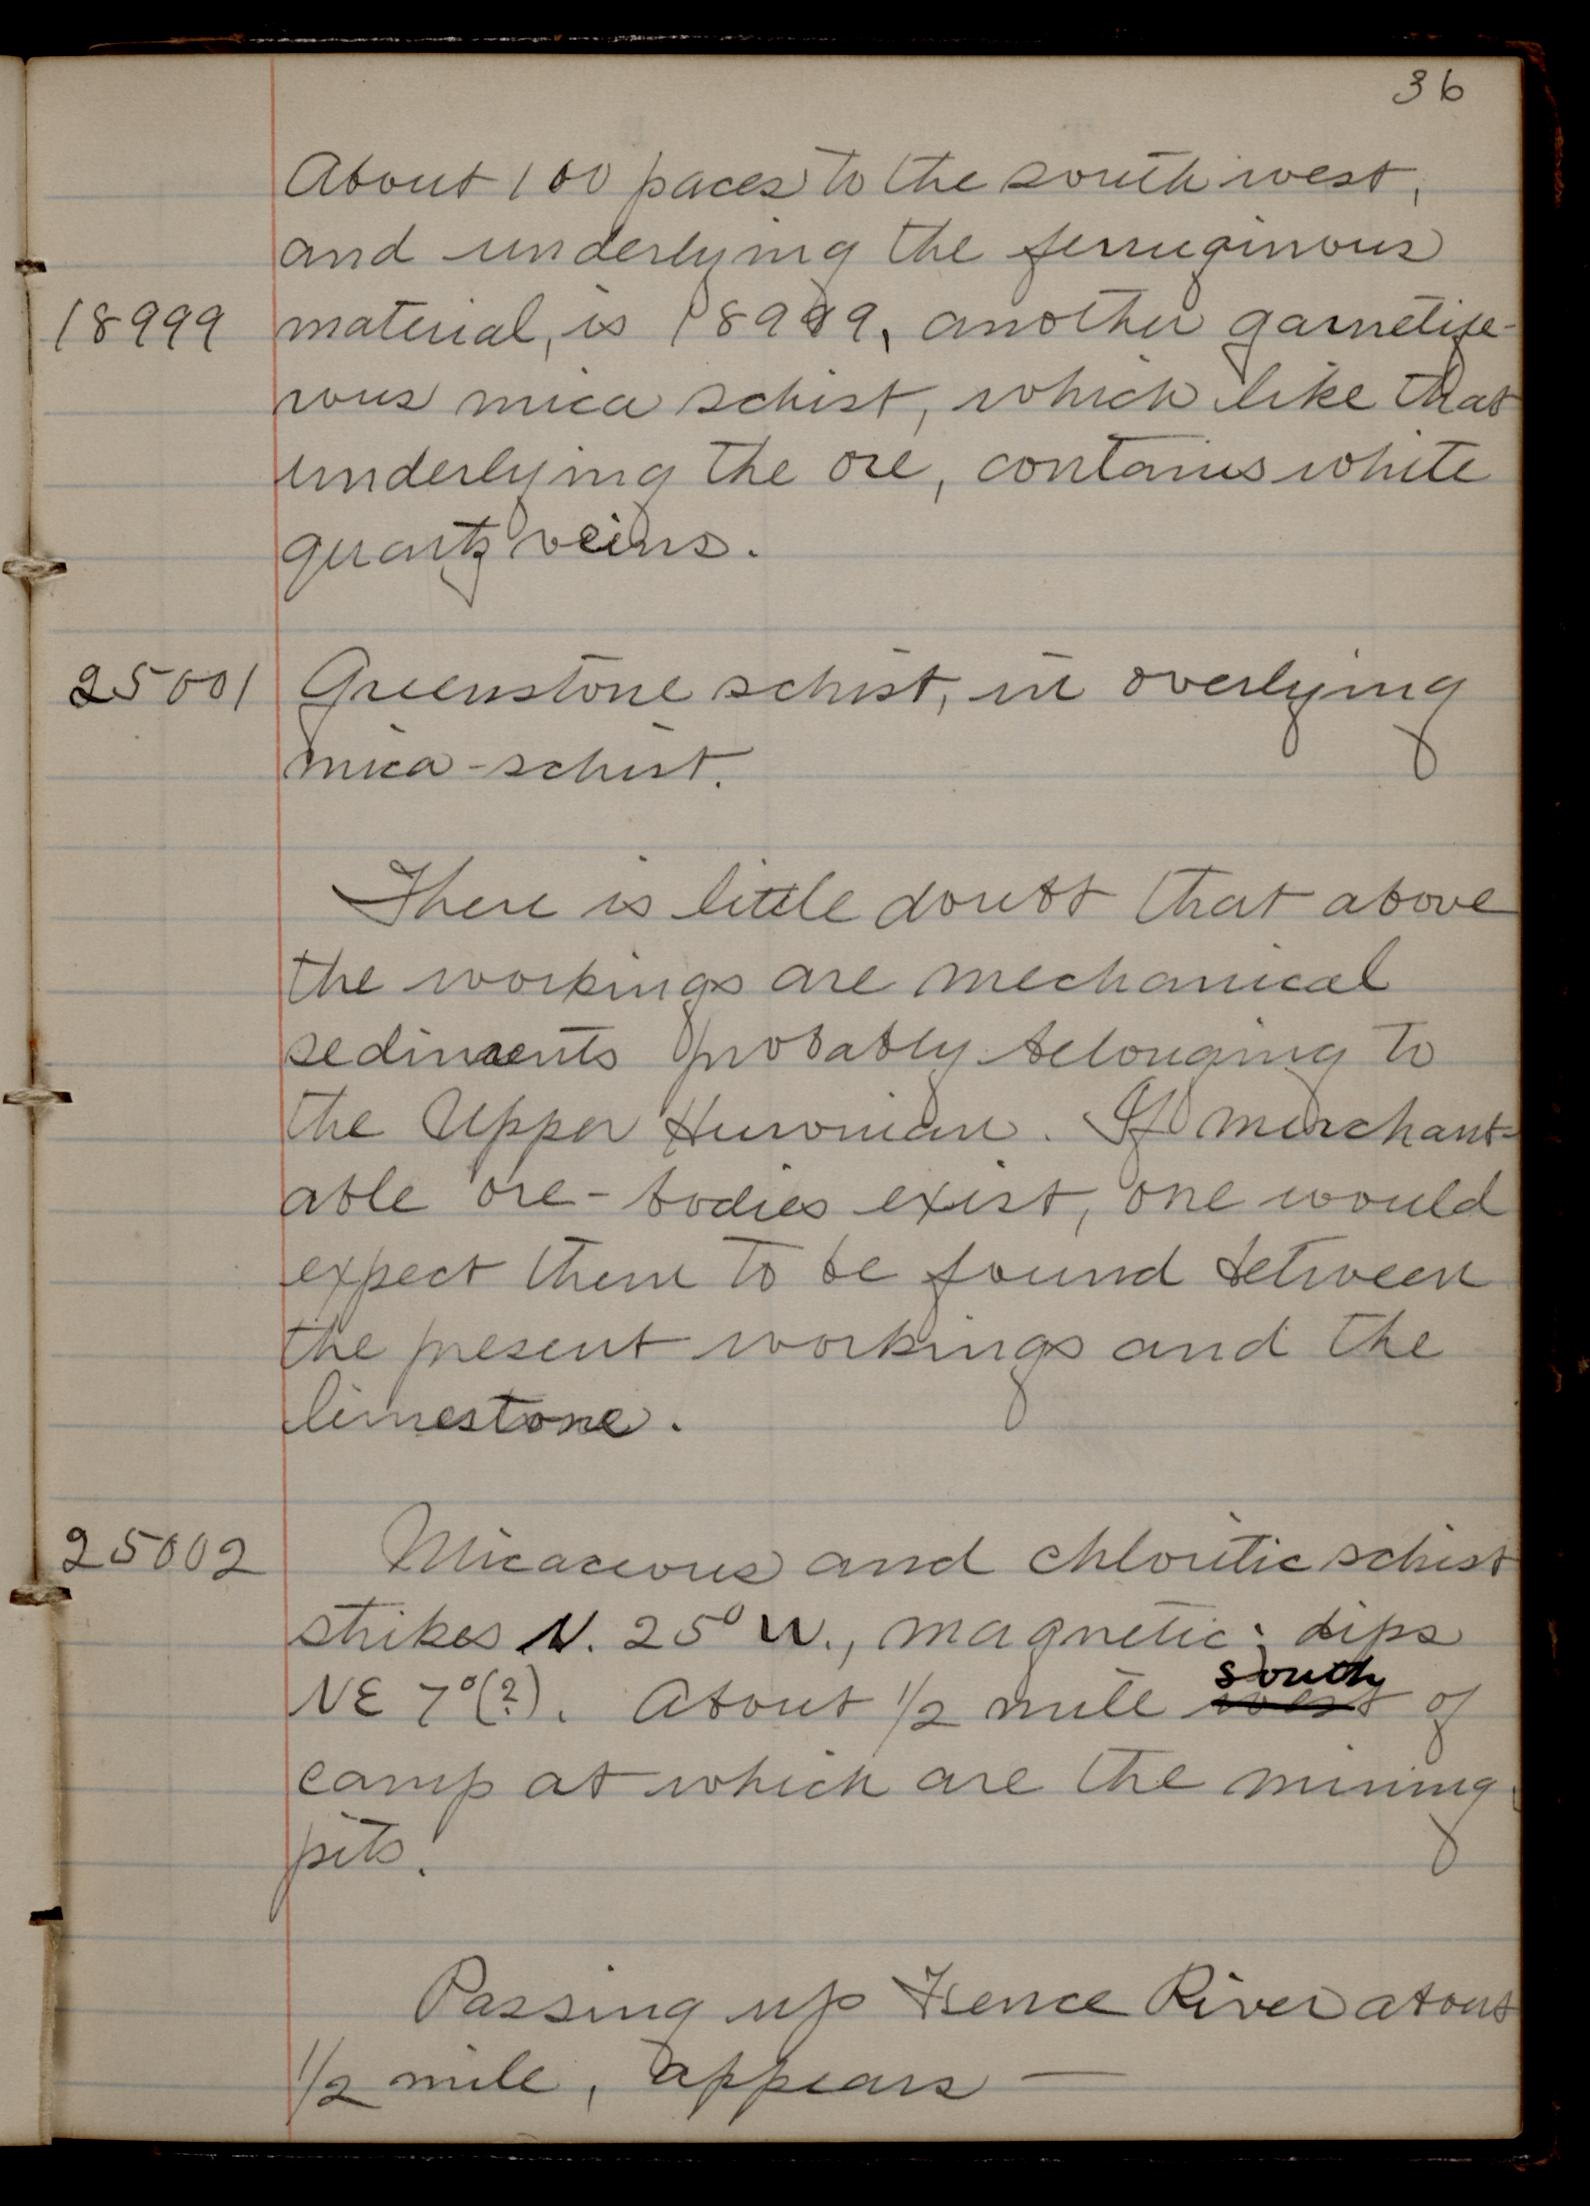 36
About 100 paces to the south west,
and underlying the ferruginous
18999 material, is 18999, another garnetife-
rous mica schist, which like that
underlying the ore, contains white
quartz veins.
25001 Greenstone schist, in overlying
mica-schist.
There is little doubt that above
the workings are mechanical
sediments probably belonging to
the Upper Huronian. If merchant-
able ore-bodies exist, one would
expect them to be found between
the present workings and the
limestone.
25002 Micaceous and chloritic schist
strikes N. 25° W., magnetic; dips
south
NE 7°(?). About 1/2 mile west of
camp at which are the mining
pits.
Passing up Fence River about
1/2 mile, appears —